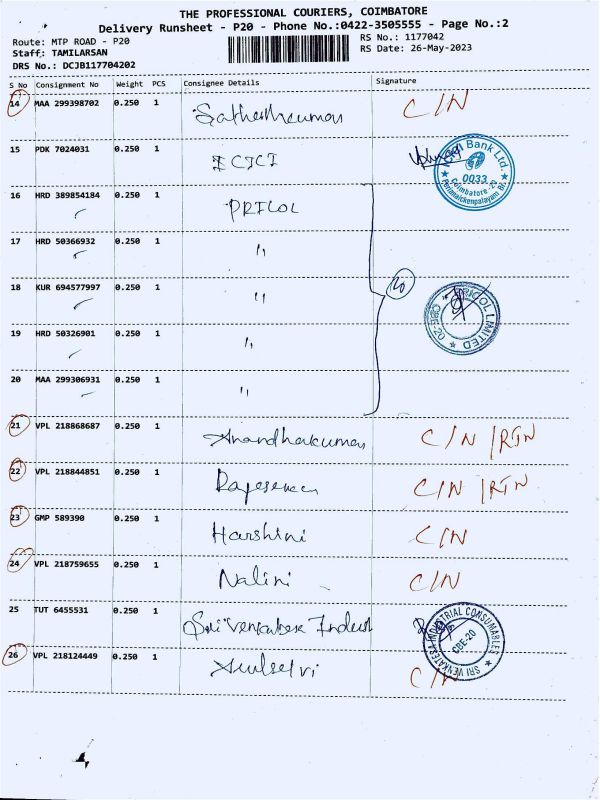 THE PROFESSIONAL COURIERS, COIMBATORE
Delivery Runsheet - P20 - Phone No.:0422-3505555 - Page No.:2
Route: MTP ROAD - P20
RS No.: 1177042
Staff: TAMILARSAN
RS Date: 26-May-2023
DRS No.: DCJB117704202
S No Consignment No Weight PCS Consignee Details Signature
14 MAA 299398702 0.250 1 C/N
15 PDK 7024031 0.250 1 ICICI
ICICI Bank Ltd. 0033 Coimbatore-20
16 HRD 389854184 0.250 1 PRICOL
17 HRD 50366932 0.250 1 "
18 KUR 694577997 0.250 1 "
PRICOL LIMITED CBE-20
19 HRD 50326901 0.250 1 "
20 MAA 299306931 0.250 1 "
21 VPL 218868687 0.250 1 Anandhakumar C/N /RTN
22 VPL 218844851 0.250 1 C/N /RTN
23 GMP 589390 0.250 1 Harshini C/N
24 VPL 218759655 0.250 1 Nalini C/N
25 TUT 6455531 0.250 1 Sri Venkatesa Indust
SRI VENKATESA INDUSTRIAL CONSUMABLES CBE-20
26 VPL 218124449 0.250 1 C/N